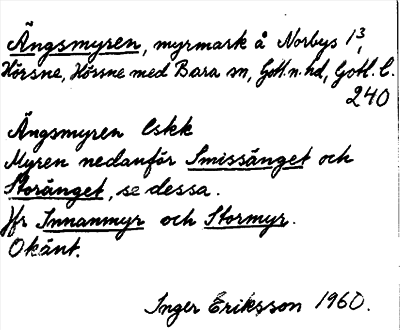 Ängsmyren, myrmark å Norbys 1³,
Hörsne, Hörsne med Bara sn, Gotl. n. hd, Gotl. l.
240
Ängsmyren Cskk
Myren nedanför Smissänget och
Storänget, se dessa.
Jfr Innanmyr och Stormyr.
Okänt.
Inger Eriksson 1960.